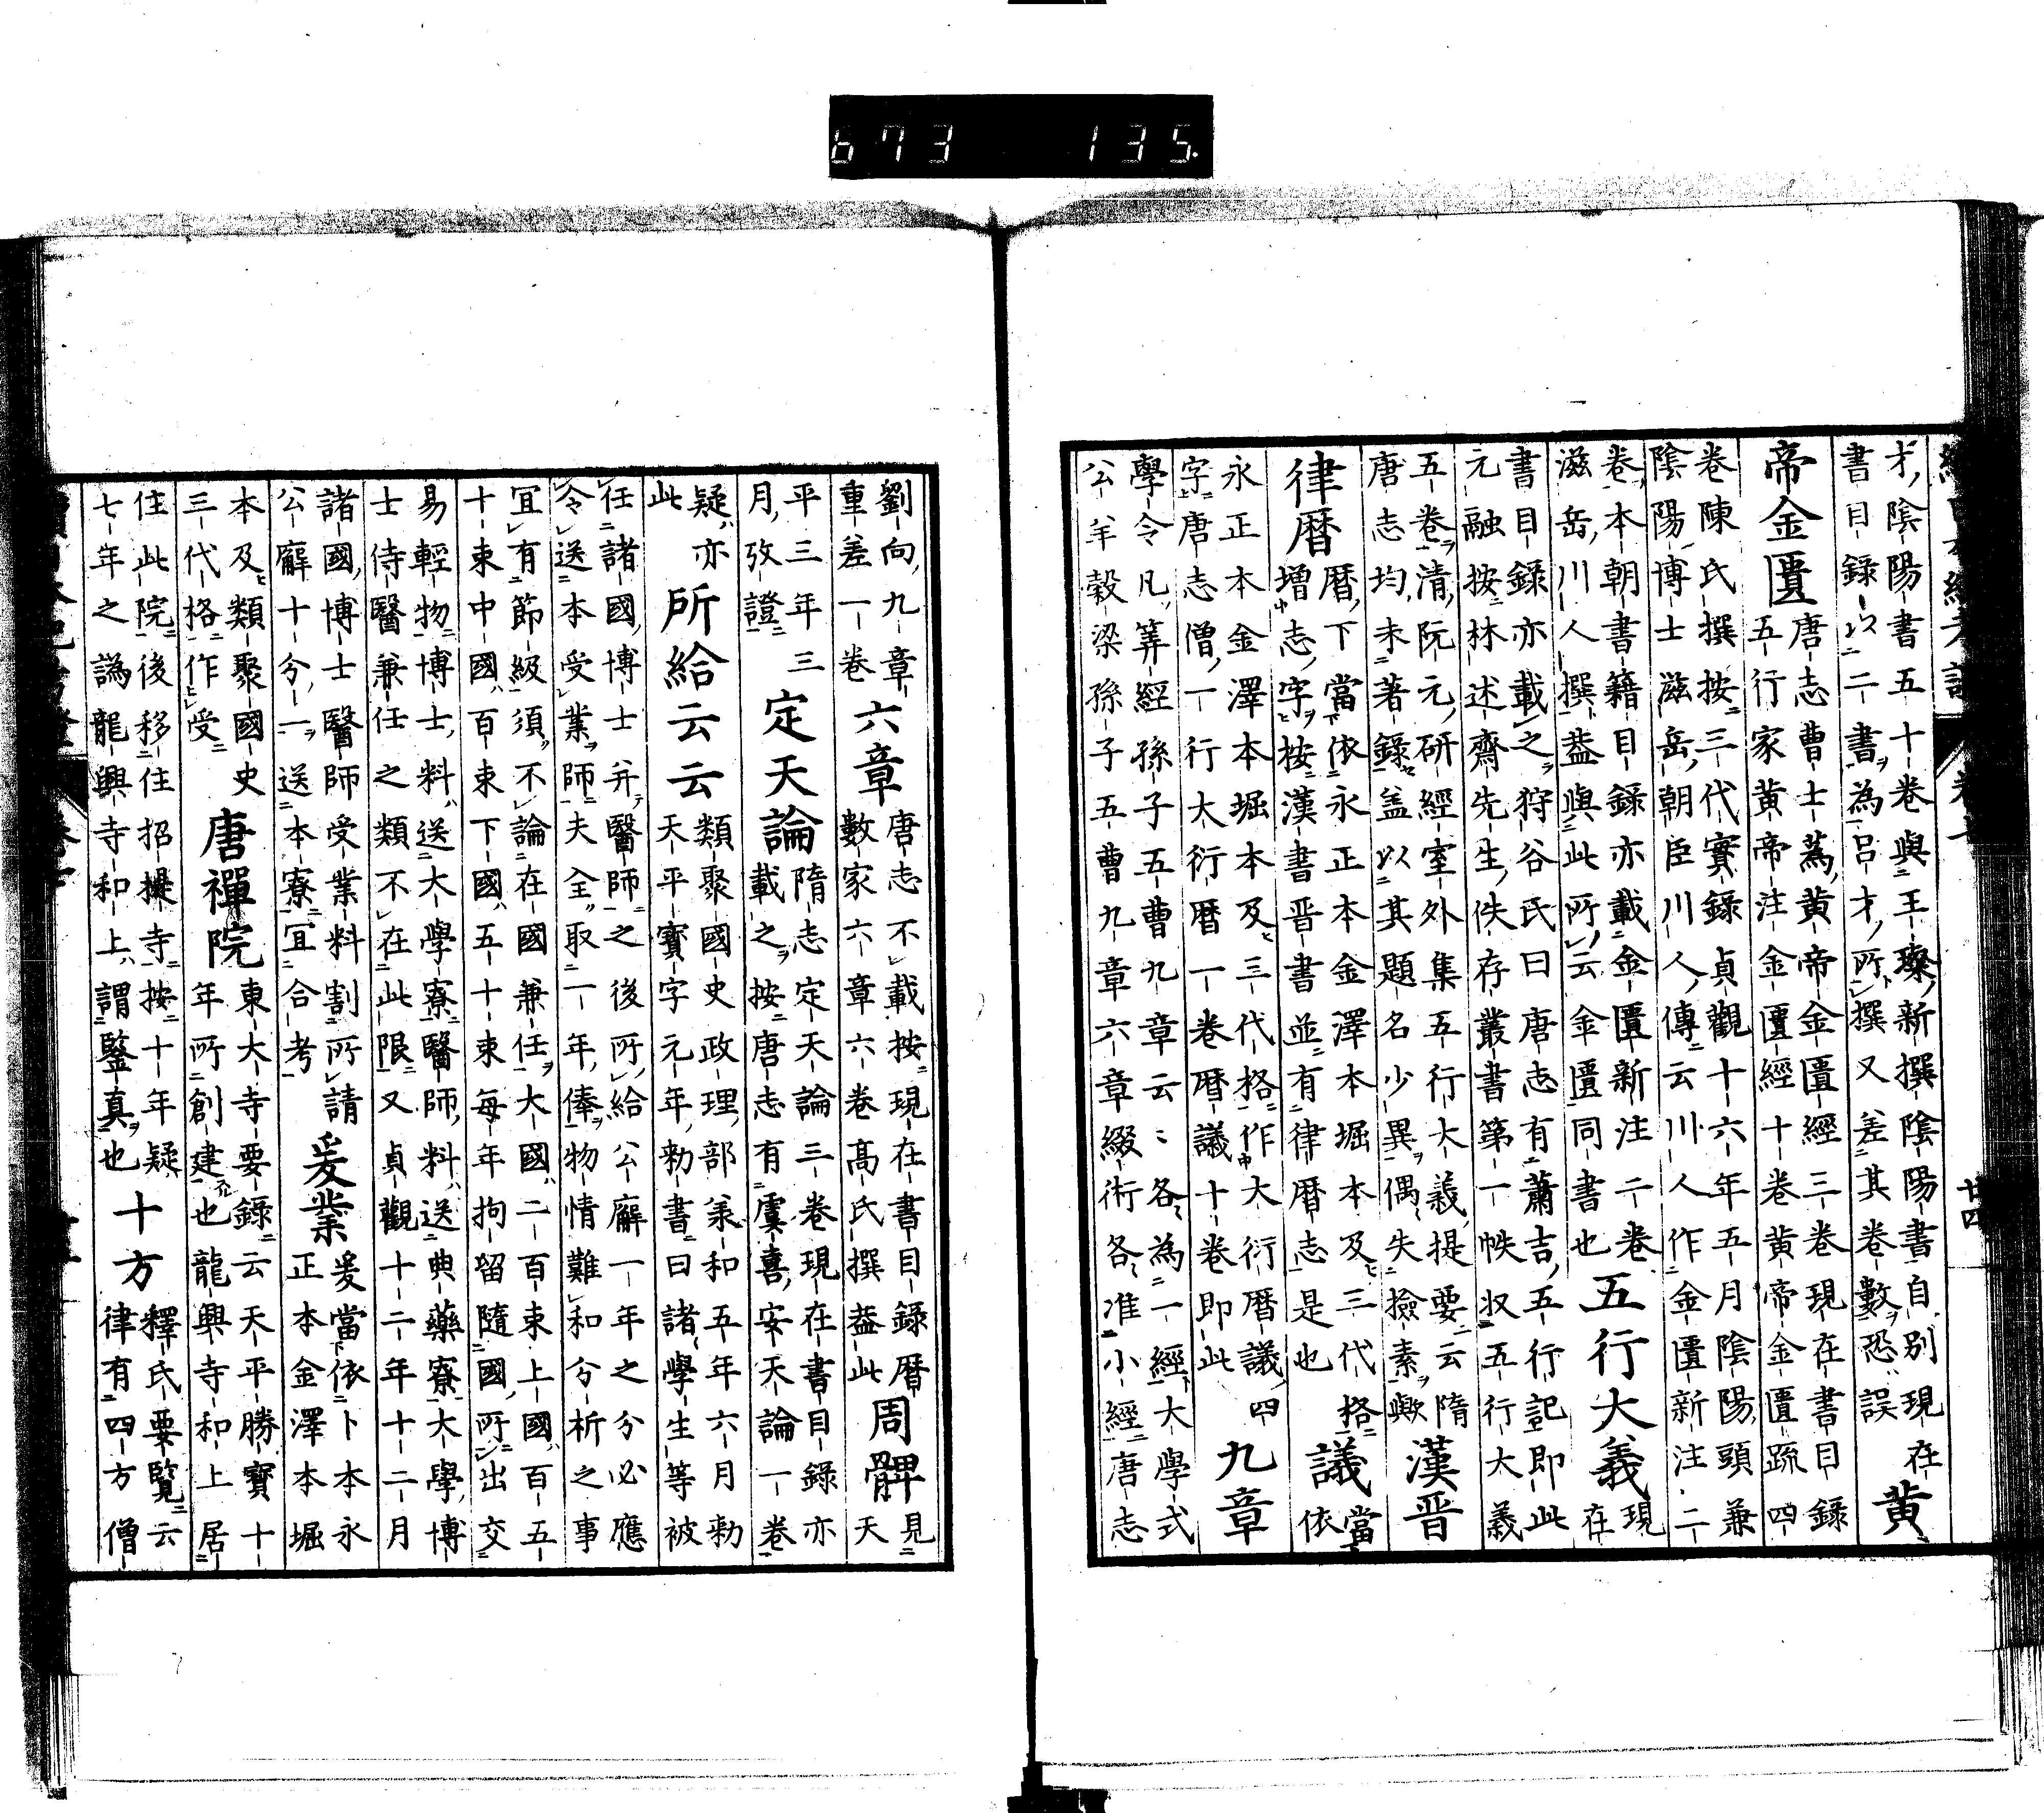 673 135
廿四
才陰陽書五十卷與王璨新撰陰陽書自別現在
書目錄以二書為呂才所撰又差其卷數恐誤
黃
帝金匱
唐志曹士蔿黃帝金匱經三卷現在書目錄
五行家黃帝注金匱經十卷黃帝金匱疏四
卷陳氏撰按三代實錄貞觀十六年五月陰陽頭兼
陰陽博士滋岳朝臣川人傳云川人作金匱新注二
卷本朝書籍目錄亦載金匱新注二卷
滋岳川人撰葢與此所云金匱同書也
五行大義
現
在
書目錄亦載之狩谷氏曰唐志有蕭吉五行記即此
元融按林述齋先生佚存叢書第一帙収五行大義
五卷清阮元研經室外集五行大義提要云隋
唐志均未著錄盖以其題名少異偶失撿素歟
漢晋
律曆
曆下當依永正本金澤本堀本及三代格
增志字按漢書晋書並有律曆志是也
議
當
依
永正本金澤本堀本及三代格作大衍曆議四
字唐志僧一行大衍曆一卷曆議十卷即此
九章
學令凡筭經孫子五曹九章云〻各為一經大學式
公羊穀梁孫子五曹九章六章綴術各准小經唐志
劉向九章
重差一卷
六章
唐志不載按現在書目錄曆
數家六章六卷髙氏撰葢此
周髀
見
天
平三年三
月攷證
定天論
隋志定天論三卷現在書目錄亦
載之按唐志有虞喜安天論一卷
疑亦
此
所給云云
類聚國史政理部羕和五年六月勅
天平寶字元年勅書曰諸學生等被
任諸國博士并醫師之後所給公廨一年之分必應
令送本受業師夫全取一年俸物情難和分析之事
宜有節級須不論在國兼任大國二百束上國百五
十束中國百束下國五十束每年拘留隨國所出交
易輕物博士料送大學寮醫師料送典藥寮大學博
士侍醫兼任之類不在此限又貞觀十二年十二月
諸國博士醫師受業料割所請
公廨十分一送本寮宜合考
爰業
爰當依卜本永
正本金澤本堀
本及類聚國史
三代格作受
唐禪院
東大寺要錄云天平勝寶十
年所創建也龍興寺和上居
住此院後移住招提寺按十年疑
七年之譌龍興寺和上謂鑒真也
十方
釋氏要覽云
律有四方僧